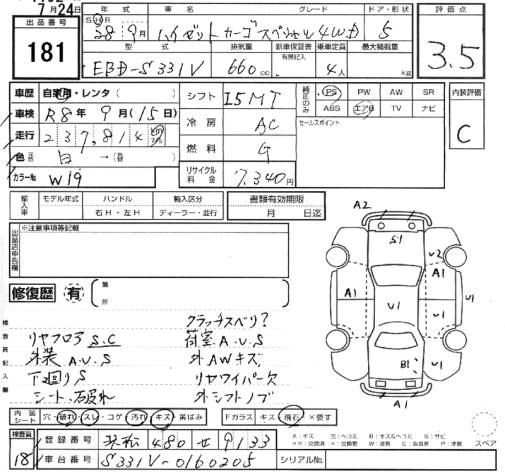 7月24日
出品番号
181
年式
車名
グレード
ドア・形状
S H R
28 9月
ハイゼットカーゴ スペシャル 4WD
5
型式
排気量
新車保証書
有無記入
乗車定員
最大積載量
EBD-S331V
660cc
4人
kg
評価点
3.5
車歴 自家用・レンタ
車検 R8年9月(15日)
走行 237,814 km
色 白→
カラーNo W19
シフト I5MT
冷房 AC
燃料 G
リサイクル料金 7,340円
純正のみ
PS PW AW SR
ABS エアB TV ナビ
セールスポイント
内装評価
C
輸入車
モデル年式
ハンドル
右H・左H
輸入区分
ディーラー・並行
書類有効期限
月 日迄
出品店申告欄
※注意事項等記載
修復歴 有
箇所
検査員記入欄
クラッチスベリ?
リヤフロア S.C
荷室 A.U.S
外装 A.U.S
外AWキズ
下回り S
リヤワイパー欠
シート 破れ
外シフトノブ
A2
S1
U2
A1
A1
U1
U1
B1
A1
内装シート
穴・破れ・スレ・コゲ・汚れ・キズ・黄ばみ
Fガラス キズ・飛石・×要す
A:キズ U:ヘコミ B:キズ&ヘコミ S:サビ
スペア
検査員
18
登録番号 浜松 480 せ 9133
車台番号 S331V-0160205
シリアルNo.